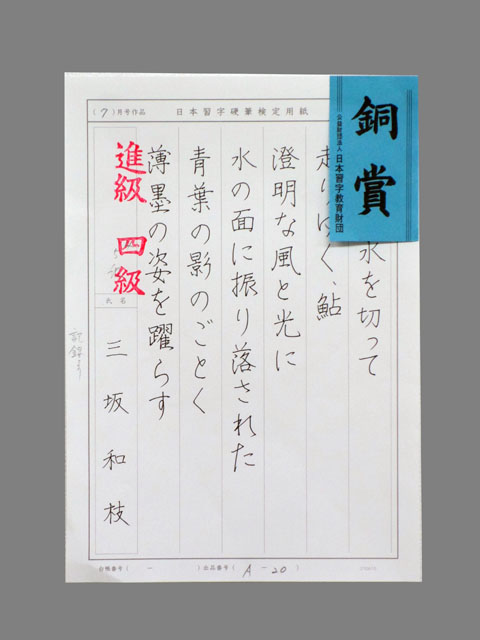 (7)月号作品
日本習字硬筆検定用紙
銅賞
公益財団法人 日本習字教育財団
水を切って
走りゆく、鮎
澄明な風と光に
水の面に振り落された
青葉の影のごとく
薄墨の姿を躍らす
進級 四級
氏名
三坂和枝
台帳番号( − )出品番号( A-20 )